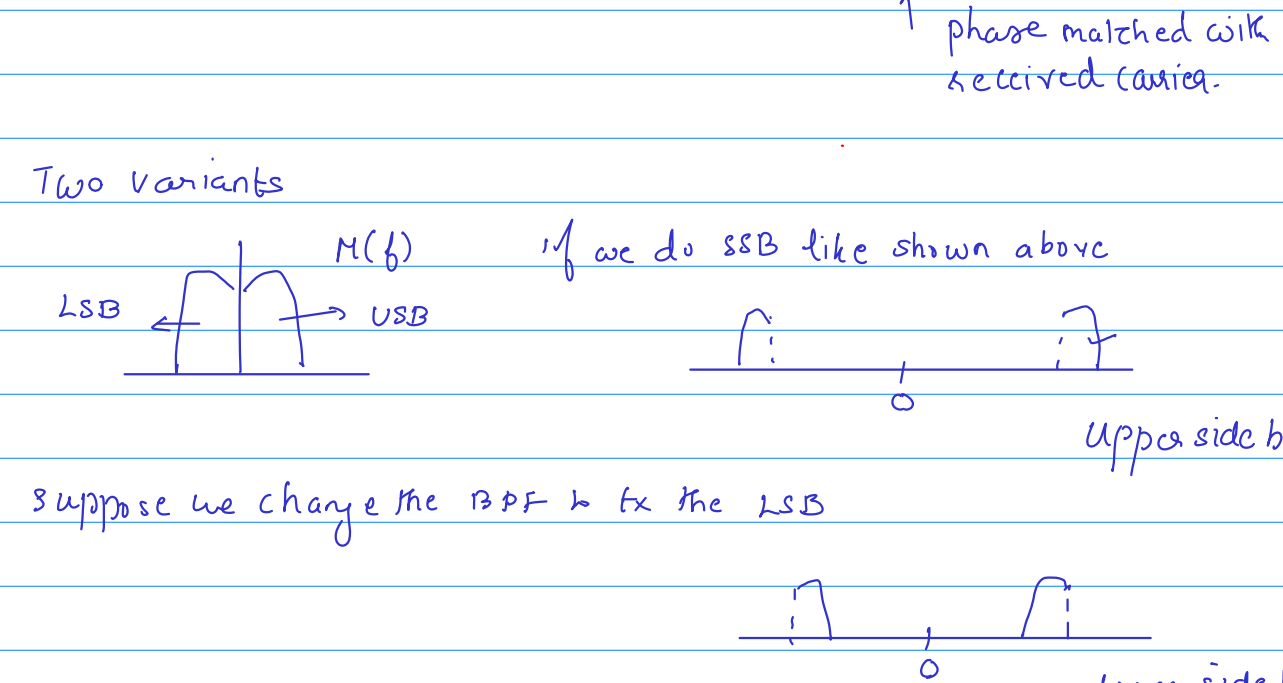 phase matched with
received carrier.
Two variants
M(f)
if we do SSB like shown above
LSB
USB
0
Upper side b
Suppose we change the BPF to tx the LSB
0
side